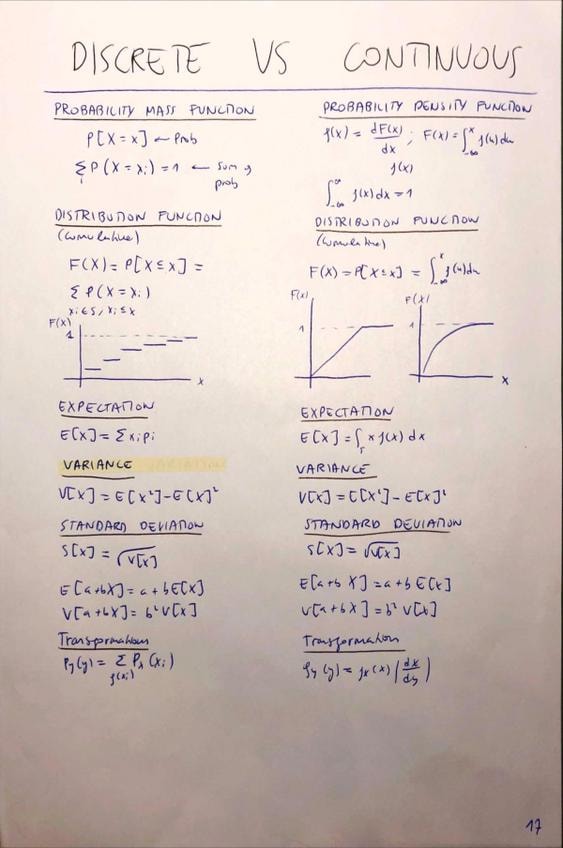 DISCRETE VS CONTINUOUS
PROBABILITY MASS FUNCTION
P[X = x] ← Prob
∑ᵢ P(X = xᵢ) = 1 ← Sum of
prob
DISTRIBUTION FUNCTION
(cumulative)
F(X) = P[X ≤ x] =
∑ P(X = xᵢ)
xᵢ ∈ S, xᵢ ≤ x
F(x)
1
x
EXPECTATION
E[X] = ∑ xᵢ pᵢ
VARIANCE
V[X] = E[X²] - E[X]²
STANDARD DEVIATION
S[X] = √V[X]
E[a+bX] = a + bE[X]
V[a+bX] = b² V[X]
Transformations
Py(y) = ∑ Px(xᵢ)
f(xᵢ)
PROBABILITY DENSITY FUNCTION
f(x) = dF(x)/dx ; F(x) = ∫_{-∞}^{x} f(u)du
f(x)
∫_{-∞}^{∞} f(x)dx = 1
DISTRIBUTION FUNCTION
(cumulative)
F(X) = P[X ≤ x] = ∫_{-∞}^{x} f(u)du
F(x) F(x)
1 1
x
EXPECTATION
E[X] = ∫_S x f(x) dx
VARIANCE
V[X] = E[X²] - E[X]²
STANDARD DEVIATION
S[X] = √V[X]
E[a+bX] = a + b E[X]
V[a+bX] = b² V[X]
Transformations
fy(y) = fx(x) |dx/dy|
17